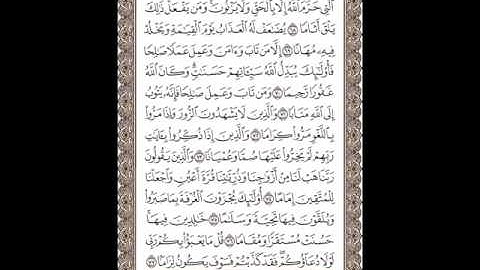 ٱلَّتِى حَرَّمَ ٱللَّهُ إِلَّا بِٱلْحَقِّ وَلَا يَزْنُونَ ۚ وَمَن يَفْعَلْ ذَٰلِكَ
يَلْقَ أَثَامًا ٦٨ يُضَٰعَفْ لَهُ ٱلْعَذَابُ يَوْمَ ٱلْقِيَٰمَةِ وَيَخْلُدْ
فِيهِۦ مُهَانًا ٦٩ إِلَّا مَن تَابَ وَءَامَنَ وَعَمِلَ عَمَلًا صَٰلِحًا
فَأُو۟لَٰٓئِكَ يُبَدِّلُ ٱللَّهُ سَيِّـَٔاتِهِمْ حَسَنَٰتٍ ۗ وَكَانَ ٱللَّهُ
غَفُورًا رَّحِيمًا ٧٠ وَمَن تَابَ وَعَمِلَ صَٰلِحًا فَإِنَّهُۥ يَتُوبُ
إِلَى ٱللَّهِ مَتَابًا ٧١ وَٱلَّذِينَ لَا يَشْهَدُونَ ٱلزُّورَ وَإِذَا مَرُّوا۟
بِٱللَّغْوِ مَرُّوا۟ كِرَامًا ٧٢ وَٱلَّذِينَ إِذَا ذُكِّرُوا۟ بِـَٔايَٰتِ
رَبِّهِمْ لَمْ يَخِرُّوا۟ عَلَيْهَا صُمًّا وَعُمْيَانًا ٧٣ وَٱلَّذِينَ يَقُولُونَ
رَبَّنَا هَبْ لَنَا مِنْ أَزْوَٰجِنَا وَذُرِّيَّٰتِنَا قُرَّةَ أَعْيُنٍ وَٱجْعَلْنَا
لِلْمُتَّقِينَ إِمَامًا ٧٤ أُو۟لَٰٓئِكَ يُجْزَوْنَ ٱلْغُرْفَةَ بِمَا صَبَرُوا۟
وَيُلَقَّوْنَ فِيهَا تَحِيَّةً وَسَلَٰمًا ٧٥ خَٰلِدِينَ فِيهَا ۚ
حَسُنَتْ مُسْتَقَرًّا وَمُقَامًا ٧٦ قُلْ مَا يَعْبَؤُا۟ بِكُمْ رَبِّى
لَوْلَا دُعَآؤُكُمْ ۖ فَقَدْ كَذَّبْتُمْ فَسَوْفَ يَكُونُ لِزَامًا ٧٧